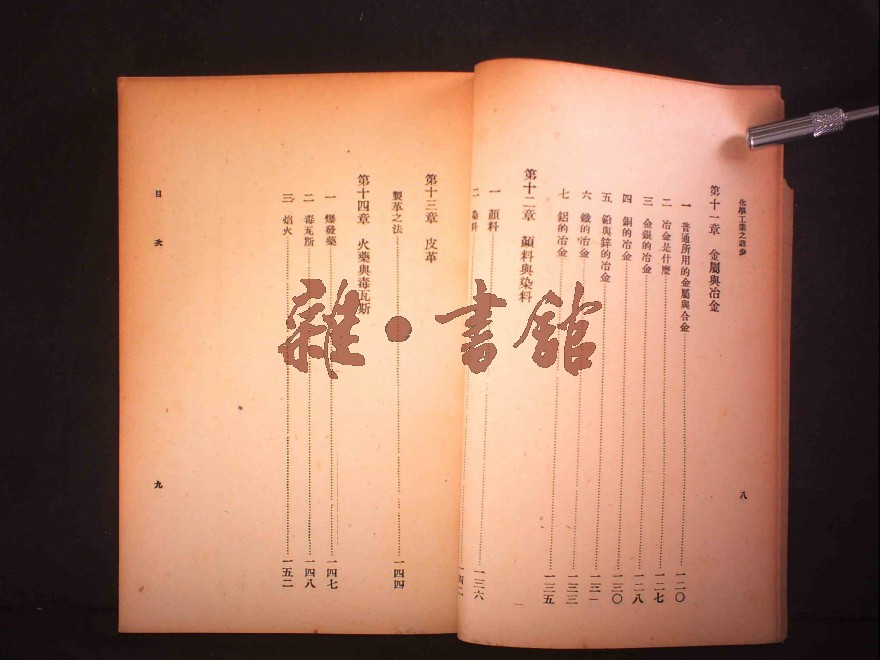 化學工業之進步 八
第十一章 金屬與冶金
一 普通所用的金屬與合金 一二〇
二 冶金是什麼 一二七
三 金銀的冶金 一二八
四 銅的冶金 一三〇
五 鉛與鋅的冶金 一三一
六 鐵的冶金 一三三
七 鋁的冶金 一三五
第十二章 顏料與染料
一 顏料 一三六
二 染料 一四二
第十三章 皮革
製革之法 一四四
第十四章 火藥與毒瓦斯
一 爆發藥 一四七
二 毒瓦斯 一四八
三 焰火 一五二
目次 九
雜·書館